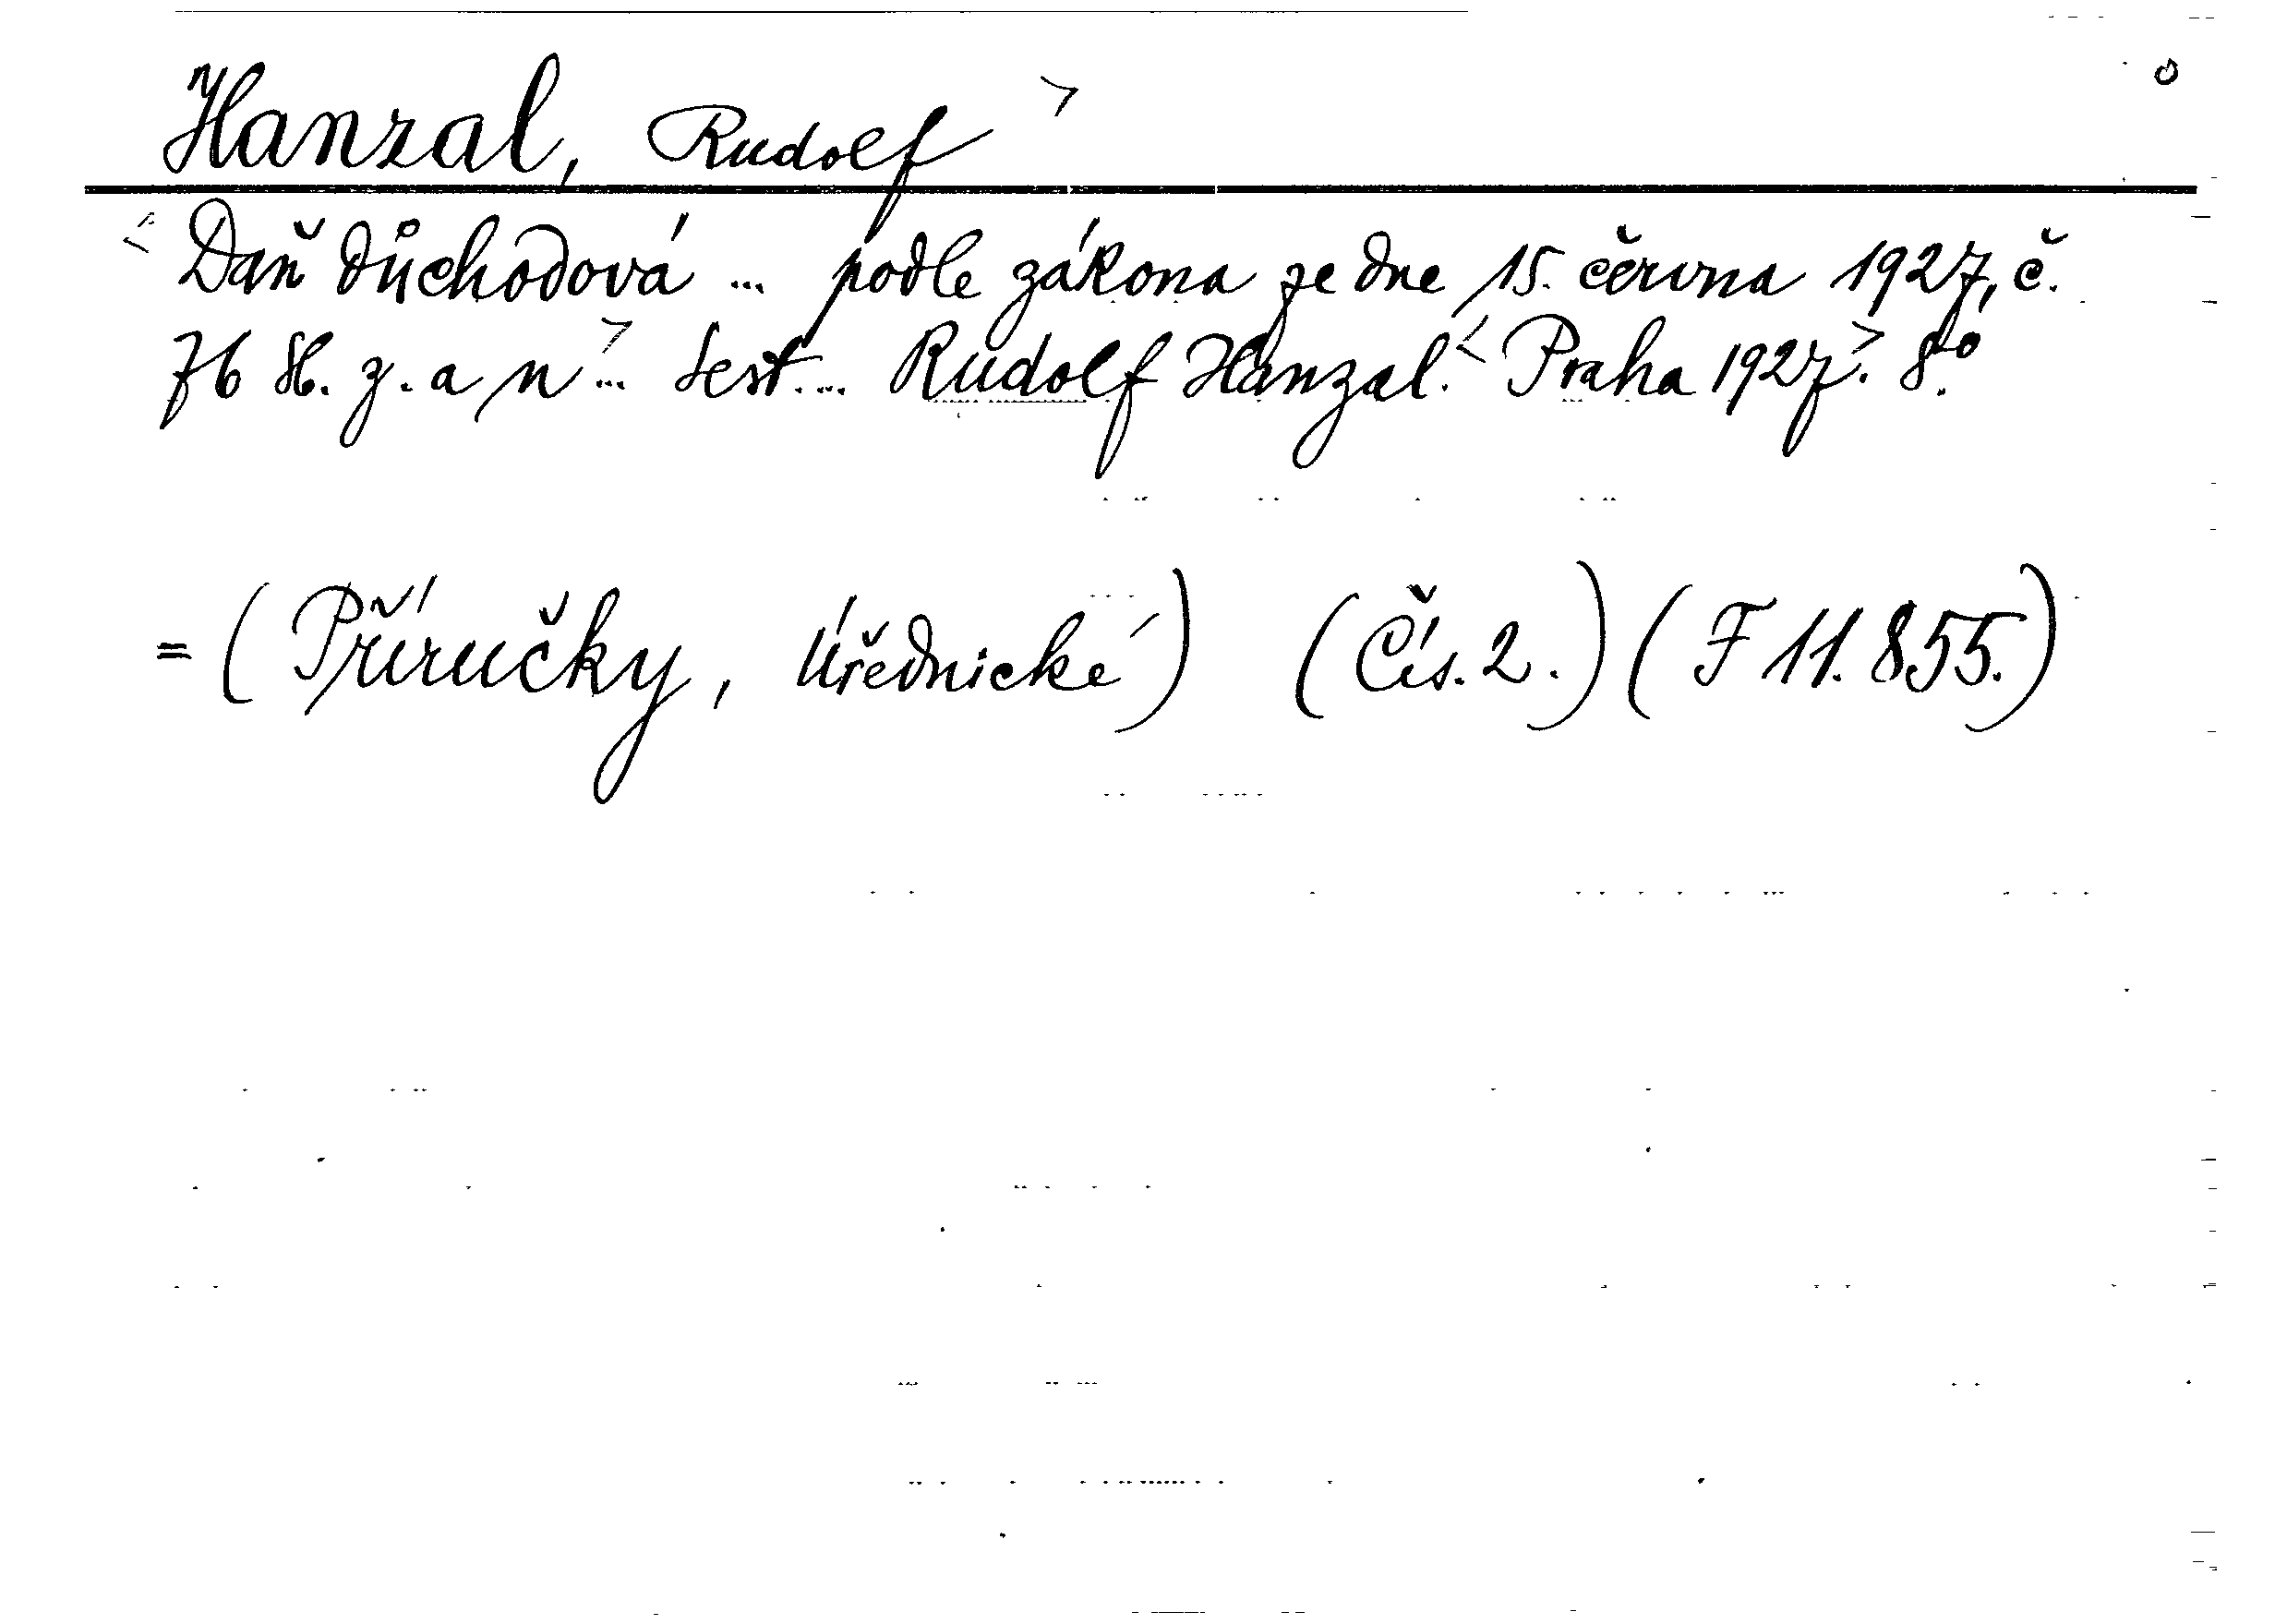 Hanzal, Rudolf >
< Daň důchodová ... podle zákona ze dne 15. června 1927, č.
76 Sb. z. a n > ... Sest. ... Rudolf Hanzal. < Praha 1927 >. 8°.
= (Příručky, Úřednické) (Čís. 2.) (F 11.855.)